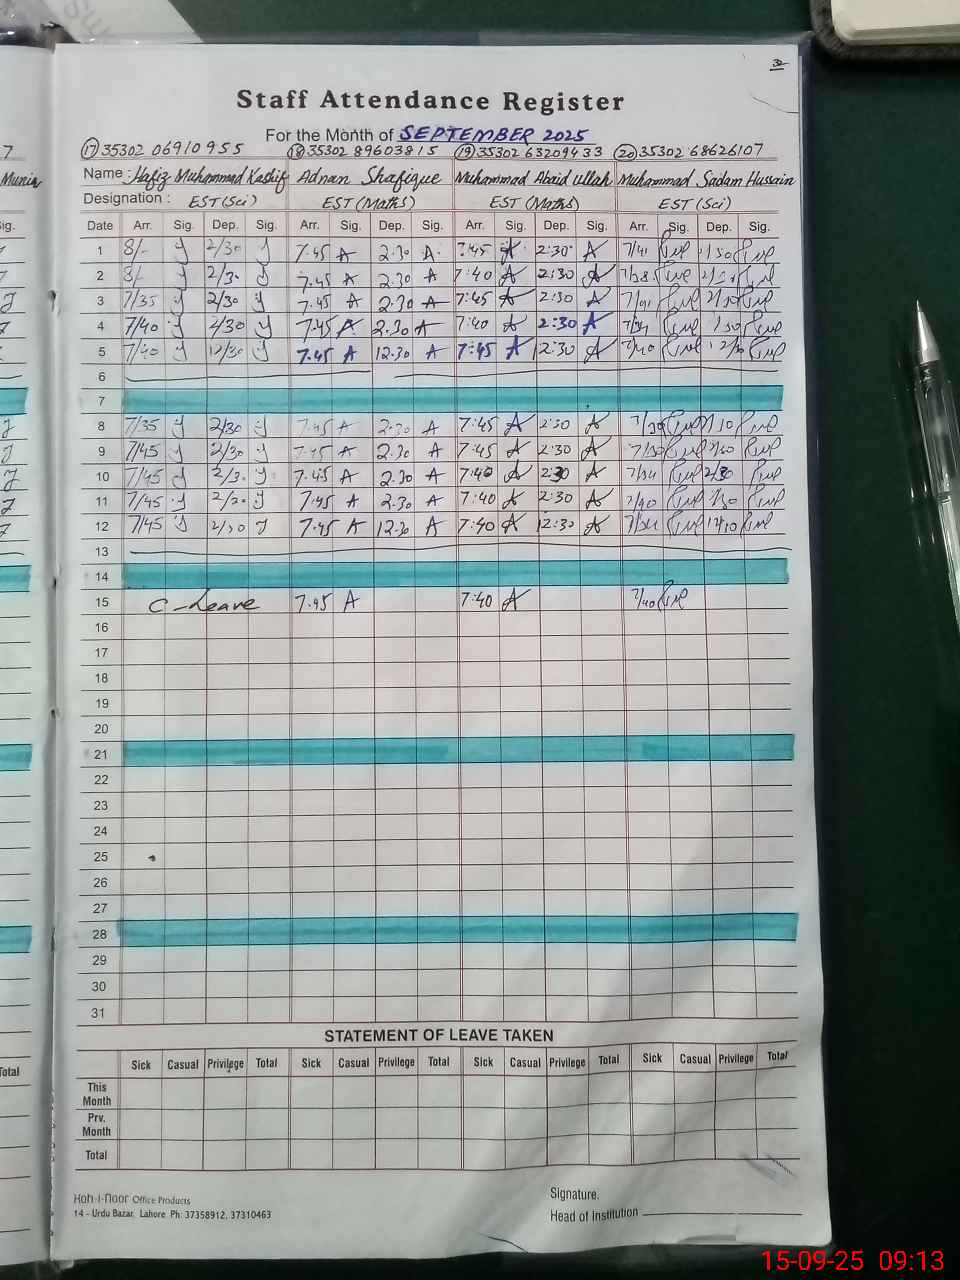 32
Staff Attendance Register
For the Month of SEPTEMBER 2025
7 (17) 35302 06910955 (18) 35302 89603815 (19) 35302 63209433 (20) 35302 68626107
Munir Name : Hafiz Muhammad Kashif Adnan Shafique Muhammad Abaid ullah Muhammad Sadam Hussain
Designation : EST (Sci) EST (Maths) EST (Maths) EST (Sci)
Sig. Date Arr. Sig. Dep. Sig. Arr. Sig. Dep. Sig. Arr. Sig. Dep. Sig. Arr. Sig. Dep. Sig.
1 8/- 2/30 7.45 A 2.30 A 7:45 A 2:30 A 7/41
2 8/- 2/30 7.45 A 2.30 A 7:40 A 2:30 A
3 7/35 2/30 7.45 A 2.30 A 7:45 A 2:30 A
4 7/40 2/30 7.45 A 2.30 A 7:40 A 2:30 A
5 7/40 12/30 7.45 A 12.30 A 7:45 A 12:30 A 7/40
6
7
8 7/35 2/30 7.45 A 2.30 A 7:45 A 2:30 A
9 7/45 2/30 7.45 A 2.30 A 7:45 A 2:30 A
10 7/45 2/30 7.45 A 2.30 A 7:40 A 2:30 A 2/30
11 7/45 2/30 7.45 A 2.30 A 7:40 A 2:30 A
12 7/45 7.45 A 12.30 A 7:40 A 12:30 A
13
14
15 C-Leave 7.45 A 7:40 A 7/40
16
17
18
19
20
21
22
23
24
25
26
27
28
29
30
31
STATEMENT OF LEAVE TAKEN
Total Sick Casual Privilege Total Sick Casual Privilege Total Sick Casual Privilege Total Sick Casual Privilege Total
This Month
Prv. Month
Total
Koh-i-noor Office Products
14 - Urdu Bazar, Lahore Ph: 37358912, 37310463
Signature.
Head of Institution
15-09-25 09:13